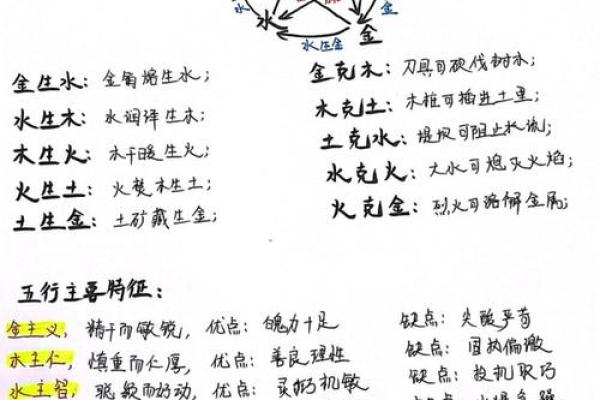 水 金
水 金
水生金
金生水：金销熔生水；
水生木：水润泽生木；
木生火：木干暖生火；
火生土：火焚木生土；
土生金：土矿藏生金；
金克木：刀具可砍伐树木；
木克土：木桩可插进土里；
土克水：堤坝可阻止水流；
水克火：大水可熄灭火焰；
火克金：烈火可溶解金属；
五行主要特征：
金主义，精干而敏锐，优点：魄力十足 缺点：尖酸严苛
木主仁，慎重而仁厚，优点：善良理性 缺点：固执偏激
水主智，聪敏而好动，优点：灵巧机敏 缺点：投机取巧